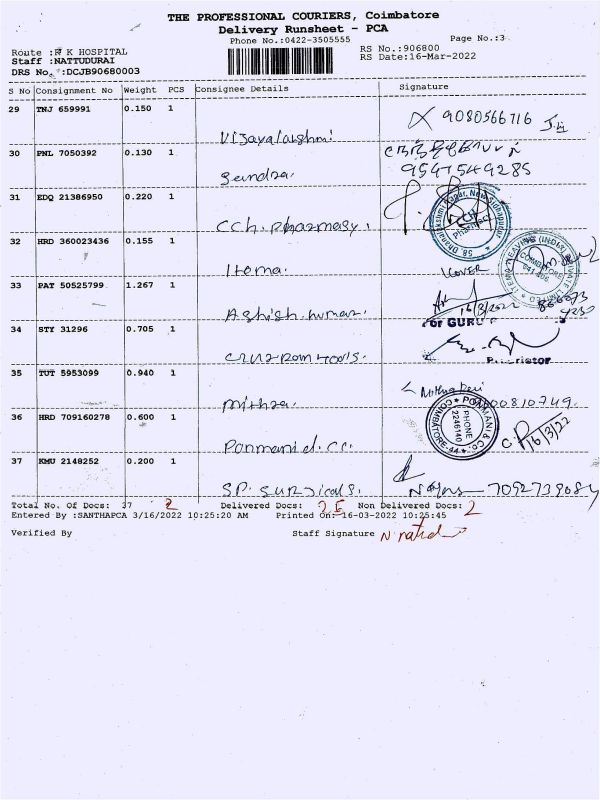 THE PROFESSIONAL COURIERS, Coimbatore
Delivery Runsheet - PCA
Phone No.:0422-3505555
Page No.:3
Route : K HOSPITAL
RS No.:906800
Staff :NATTUDURAI
RS Date:16-Mar-2022
DRS No. :DCJB90680003
S No Consignment No Weight PCS Consignee Details Signature
29 TNJ 659991 0.150 1 Vijayalakshmi 9080566716
30 PNL 7050392 0.130 1 9547549285
31 EDQ 21386950 0.220 1 CCh. Pharmasy.
58, Dhanalakshmi Nagar, New Sidhapudur
Pharmacy
32 HRD 360023436 0.155 1 Itema.
ITEMA WEAVING (INDIA) PRIVATE LIMITED
COIMBATORE
33 PAT 50525799 1.267 1 Ashish kumar. 16/3/2022
For GURU
34 STY 31296 0.705 1
Proprietor
35 TUT 5953099 0.940 1 Mithra.
36 HRD 709160278 0.600 1 Ponmani &. CC.
PONMANI & CO.
PHONE
2246140
COIMBATORE-44
16/3/22
37 KMU 2148252 0.200 1 SP. Surgicals. 7092739084
Total No. Of Docs: 37 2 Delivered Docs: 35 Non Delivered Docs: 2
Entered By :SANTHAPCA 3/16/2022 10:25:20 AM Printed On: 16-03-2022 10:25:45
Verified By Staff Signature